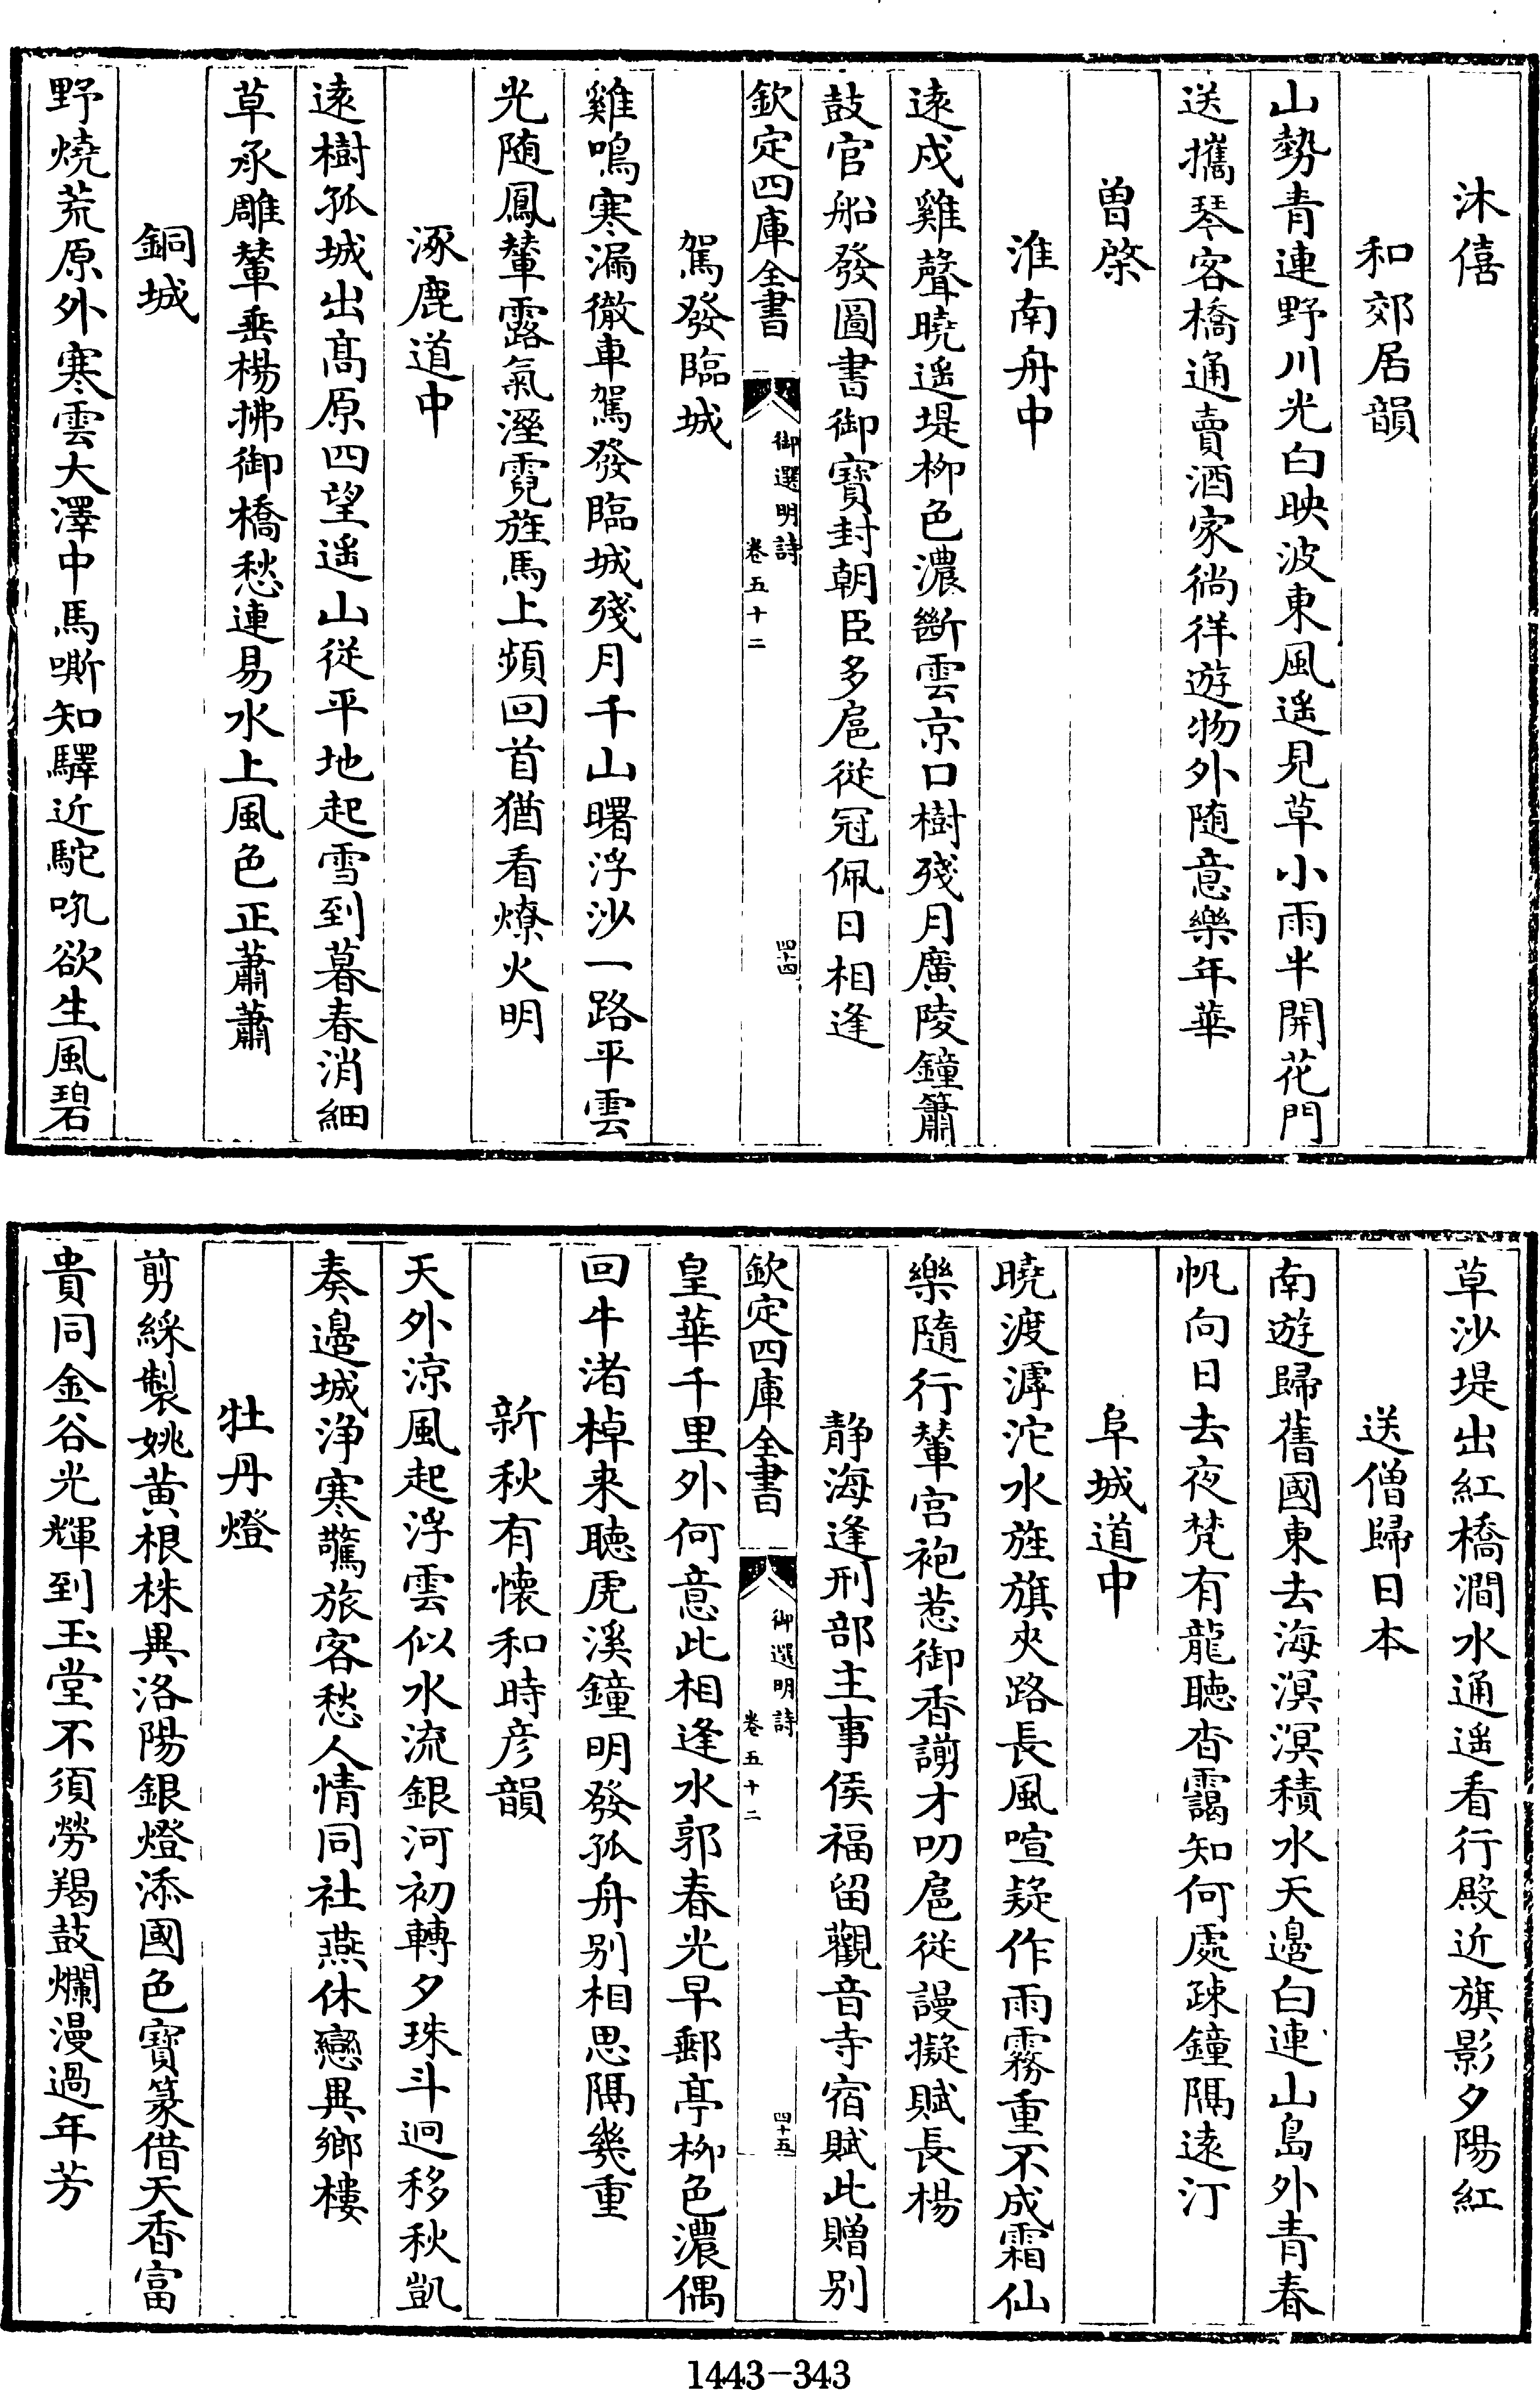 沐僖
和郊居韻
山勢青連野川光白映波東風遥見草小雨半開花門
送攜琴客橋通賣酒家徜徉遊物外随意樂年華
曽棨
淮南舟中
遠戍雞聲曉遥堤柳色濃斷雲京口樹殘月廣陵鐘簫
鼓官船發圖書御寳封朝臣多扈從冠佩日相逢
欽定四庫全書
御選明詩
卷五十二
四十四
駕發臨城
雞鳴寒漏徹車駕發臨城殘月千山曙浮沙一路平雲
光随鳳輦露氣溼霓旌馬上頻回首猶看燎火明
涿鹿道中
遠樹孤城出髙原四望遥山從平地起雪到暮春消細
草承雕輦垂楊拂御橋愁連易水上風色正蕭蕭
銅城
野燒荒原外寒雲大澤中馬嘶知驛近駝吼欲生風碧
草沙堤出紅橋澗水通遥看行殿近旗影夕陽紅
送僧歸日本
南遊歸舊國東去海溟溟積水天邉白連山島外青春
帆向日去夜梵有龍聴杳靄知何處疎鐘隔遠汀
阜城道中
曉渡滹沱水旌旗夾路長風喧疑作雨霧重不成霜仙
樂隨行輦宫袍惹御香謭才叨扈從謾擬賦長楊
静海逢刑部主事侯福留觀音寺宿賦此贈别
欽定四庫全書
御選明詩
卷五十二
四十五
皇華千里外何意此相逢水郭春光早郵亭柳色濃偶
回牛渚棹来聴虎溪鐘明發孤舟别相思隔幾重
新秋有懐和時彦韻
天外涼風起浮雲似水流銀河初轉夕珠斗迥移秋凱
奏邉城浄寒驚旅客愁人情同社燕休戀異鄉樓
牡丹燈
剪綵製姚黄根株異洛陽銀燈添國色寳篆借天香富
貴同金谷光輝到玉堂不須勞羯鼓爛漫過年芳
1443-343